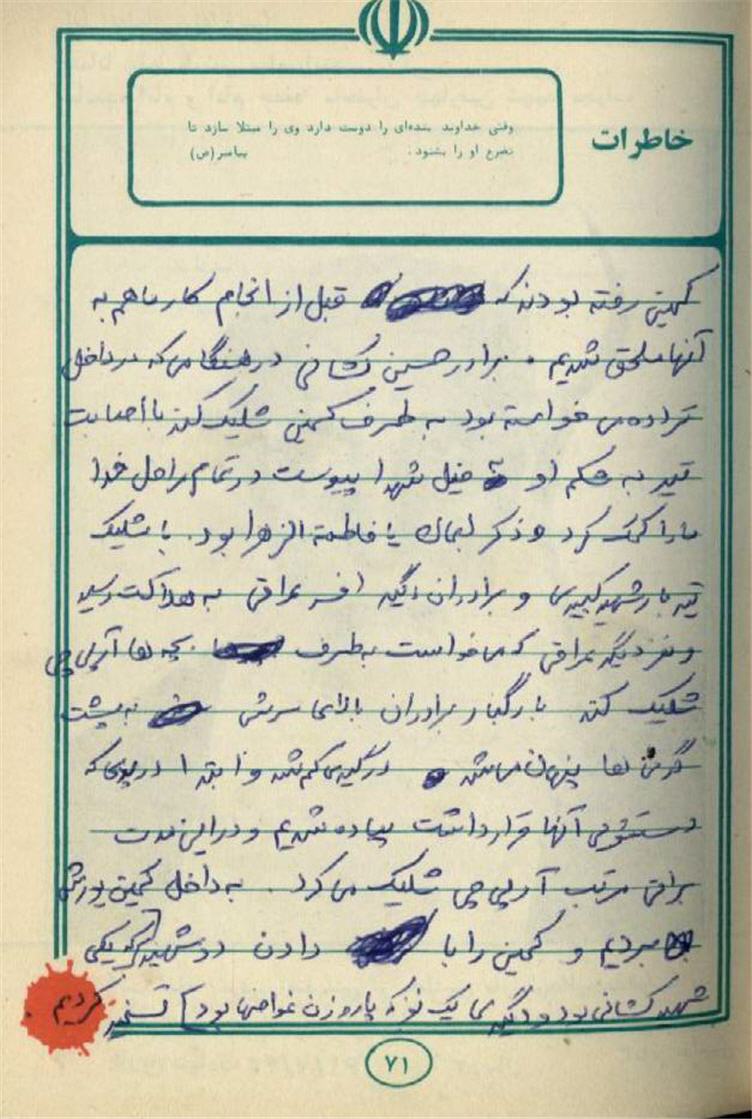 خاطرات
وقتی خداوند بنده‌ای را دوست دارد وی را مبتلا سازد تا
تضرع او را بشنود. پیامبر(ص)
کمین رفته بودند که قبل از انجام کار ما هم به
آنها ملحق شدیم . برادر حسین کشانی در هنگامی که در داخل
می خواسته بود به طرف کمین شلیک کند با اصابت
تیر به او به خیل شهدا پیوست در تمام مراحل خدا
ما را کمک کرد و ذکر لبمان یا فاطمة الزهرا بود. با شلیک
تیر بار شهید و برادران دیگر افسر عراقی به هلاکت رسید
و نفر دیگر عراقی که می خواست بطرف بچه ها آرپی جی
شلیک کند با رگبار برادران بالای سرش به پشت
گونی ها پنهان می شد و درگیری کم شد و ابتدا در پلی که
آنها قرار داشت پیاده شدیم و در این مدت
عراقی مرتب آرپی جی شلیک می کرد . به داخل کمین یورش
بردیم و کمین را با دادن دو شهید [که یکی
شهید کشانی بود و دیگری یک نفر که پارو زن غواصها بود] تسخیر کردیم .
۷۱